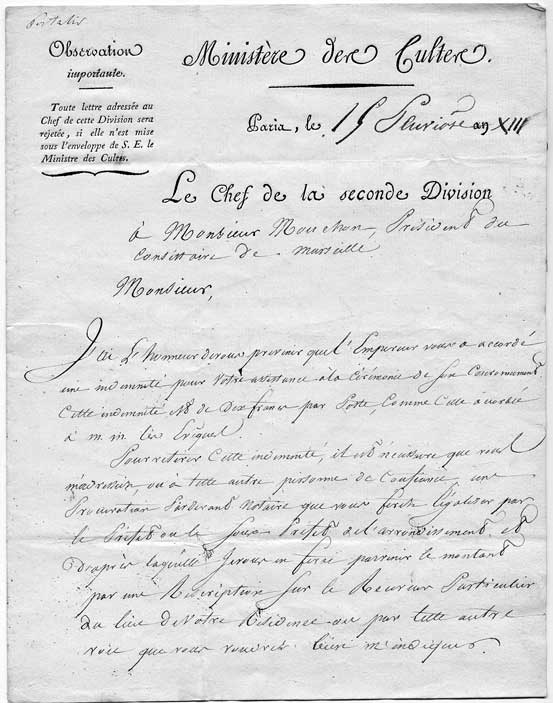 Portalis
Observation
importante.
Toute lettre adressée au
Chef de cette Division sera
rejetée, si elle n'est mise
sous l'enveloppe de S. E. le
Ministre des Cultes.
Ministère des Cultes.
Paris, le 15 Pluviose an XIII
Le Chef de la seconde Division
à Monsieur Mouchon, Président du
Consistoire de Marseille
Monsieur,
J'ai l'honneur de vous prevenir que l'Empereur vous a accordé
une indemnité pour votre assistance à la Cérémonie de Son Couronnement
Cette indemnité est de Dix francs par Poste, Comme Celle accordée
à m m les Evêques.
Pour retirer Cette indemnité, il est nécessaire que vous
m'adressiez, ou a telle autre personne de Confiance, une
Procuration Pardevant Notaire que vous ferez légaliser par
le Préfet ou le Sous Prefet de l'arrondissement, et
d'après laquelle Je vous en ferai parvenir le montant
par une Rescription sur le Receveur Particulier
du lieu de Votre Résidence ou par telle autre
voie que vous voudrés bien m'indiquer.